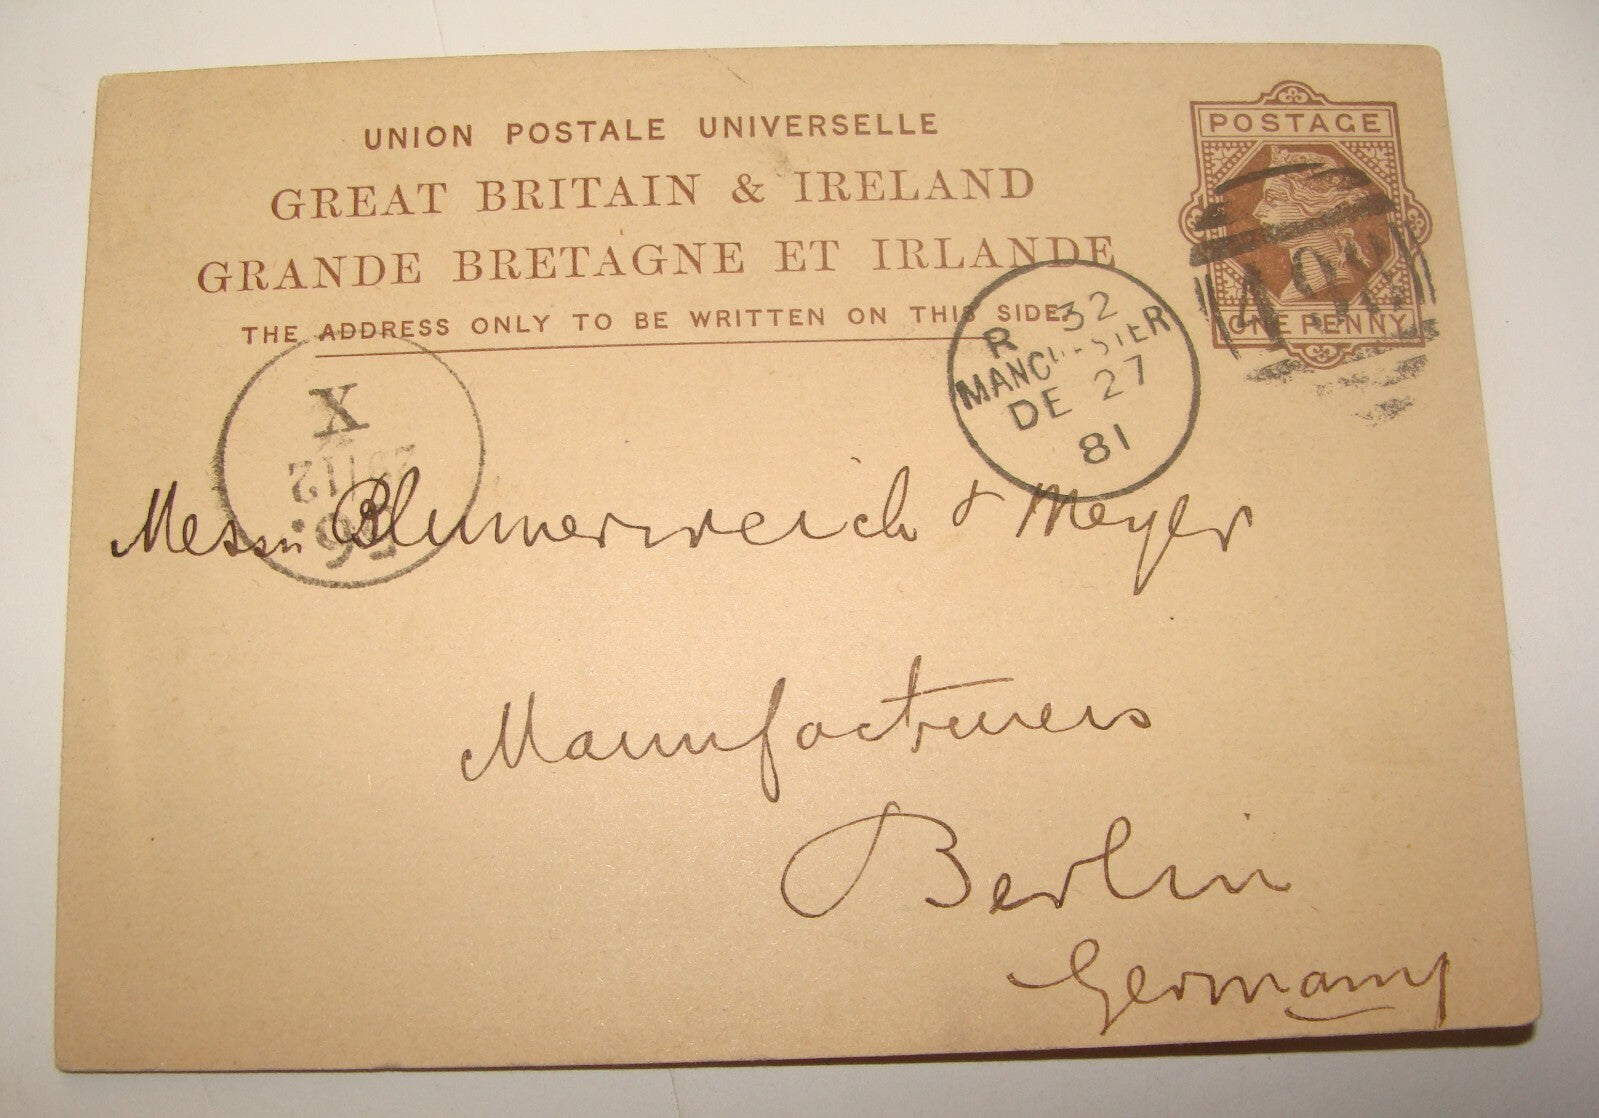 UNION POSTALE UNIVERSELLE
GREAT BRITAIN & IRELAND
GRANDE BRETAGNE ET IRLANDE
THE ADDRESS ONLY TO BE WRITTEN ON THIS SIDE.
POSTAGE
ONE PENNY
498
R 32
MANCHESTER
DE 27
81
X
12
Messrs Blumenreich & Meyer
Manufacturers
Berlin
Germany